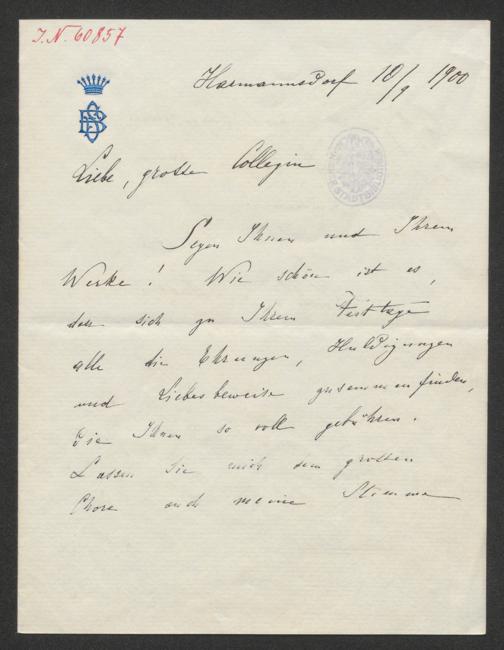 I.N. 60857
Harmannsdorf 10/9 1900
BS
Liebe, grosse Collegin
Segen Ihnen und Ihrem
Werke! Wie schön ist es,
dass sich zu Ihrem Festtage
alle die Ehrungen, Huldigungen
und Liebesbeweise zusammenfinden,
die Ihnen so voll gebühren.
Lassen Sie mich dem grossen
Chore auch meine Stimme